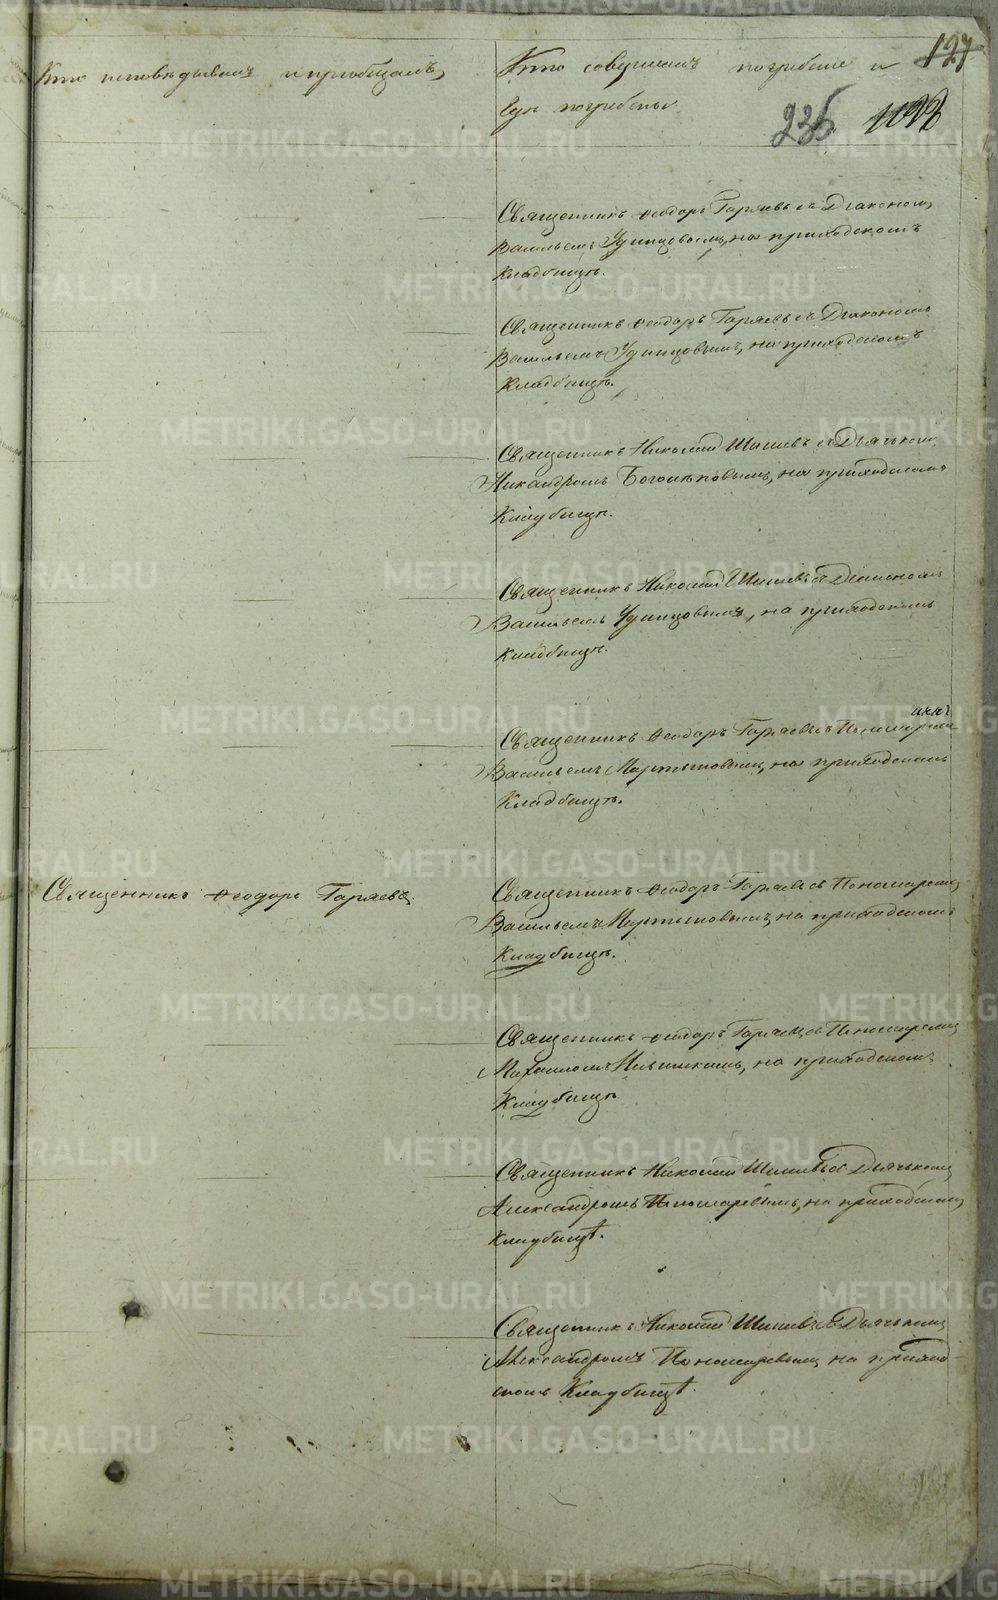 Кто исповѣдывалъ и приобщалъ,
Кто совершалъ погребеніе и
гдѣ погребены
127
235
Священникъ Ѳеодоръ Горяевъ съ Діакономъ
Васильемъ Удинцовымъ, на приходскомъ
Кладбищѣ.
Священникъ Ѳеодоръ Горяевъ съ Діакономъ
Васильемъ Удинцовымъ, на приходскомъ
Кладбищѣ.
Священникъ Николай Шишевъ съ Дьячкомъ
Никандромъ Богомѣповымъ, на приходскомъ
Кладбищѣ.
Священникъ Николай Шишевъ съ Діакономъ
Васильемъ Удинцовымъ, на приходскомъ
Кладбищѣ.
Священникъ Ѳеодоръ Горяевъ съ Пономаремъ
Васильемъ Мартыновымъ, на приходскомъ
Кладбищѣ.
Священникъ Ѳеодоръ Горяевъ.
Священникъ Ѳеодоръ Горяевъ съ Пономаремъ
Васильемъ Мартыновымъ, на приходскомъ
Кладбищѣ.
Священникъ Ѳеодоръ Горяевъ съ Пономаремъ
Михаиломъ на приходскомъ
Кладбищѣ
Священникъ Николай Шишевъ съ Дьячкомъ
Александромъ Пономаревымъ, на приходскомъ
Кладбищѣ.
Священникъ Николай Шишевъ съ Дьячкомъ
Александромъ Пономаревымъ на приход-
скомъ Кладбищѣ.
METRIKI.GASO-URAL.RU